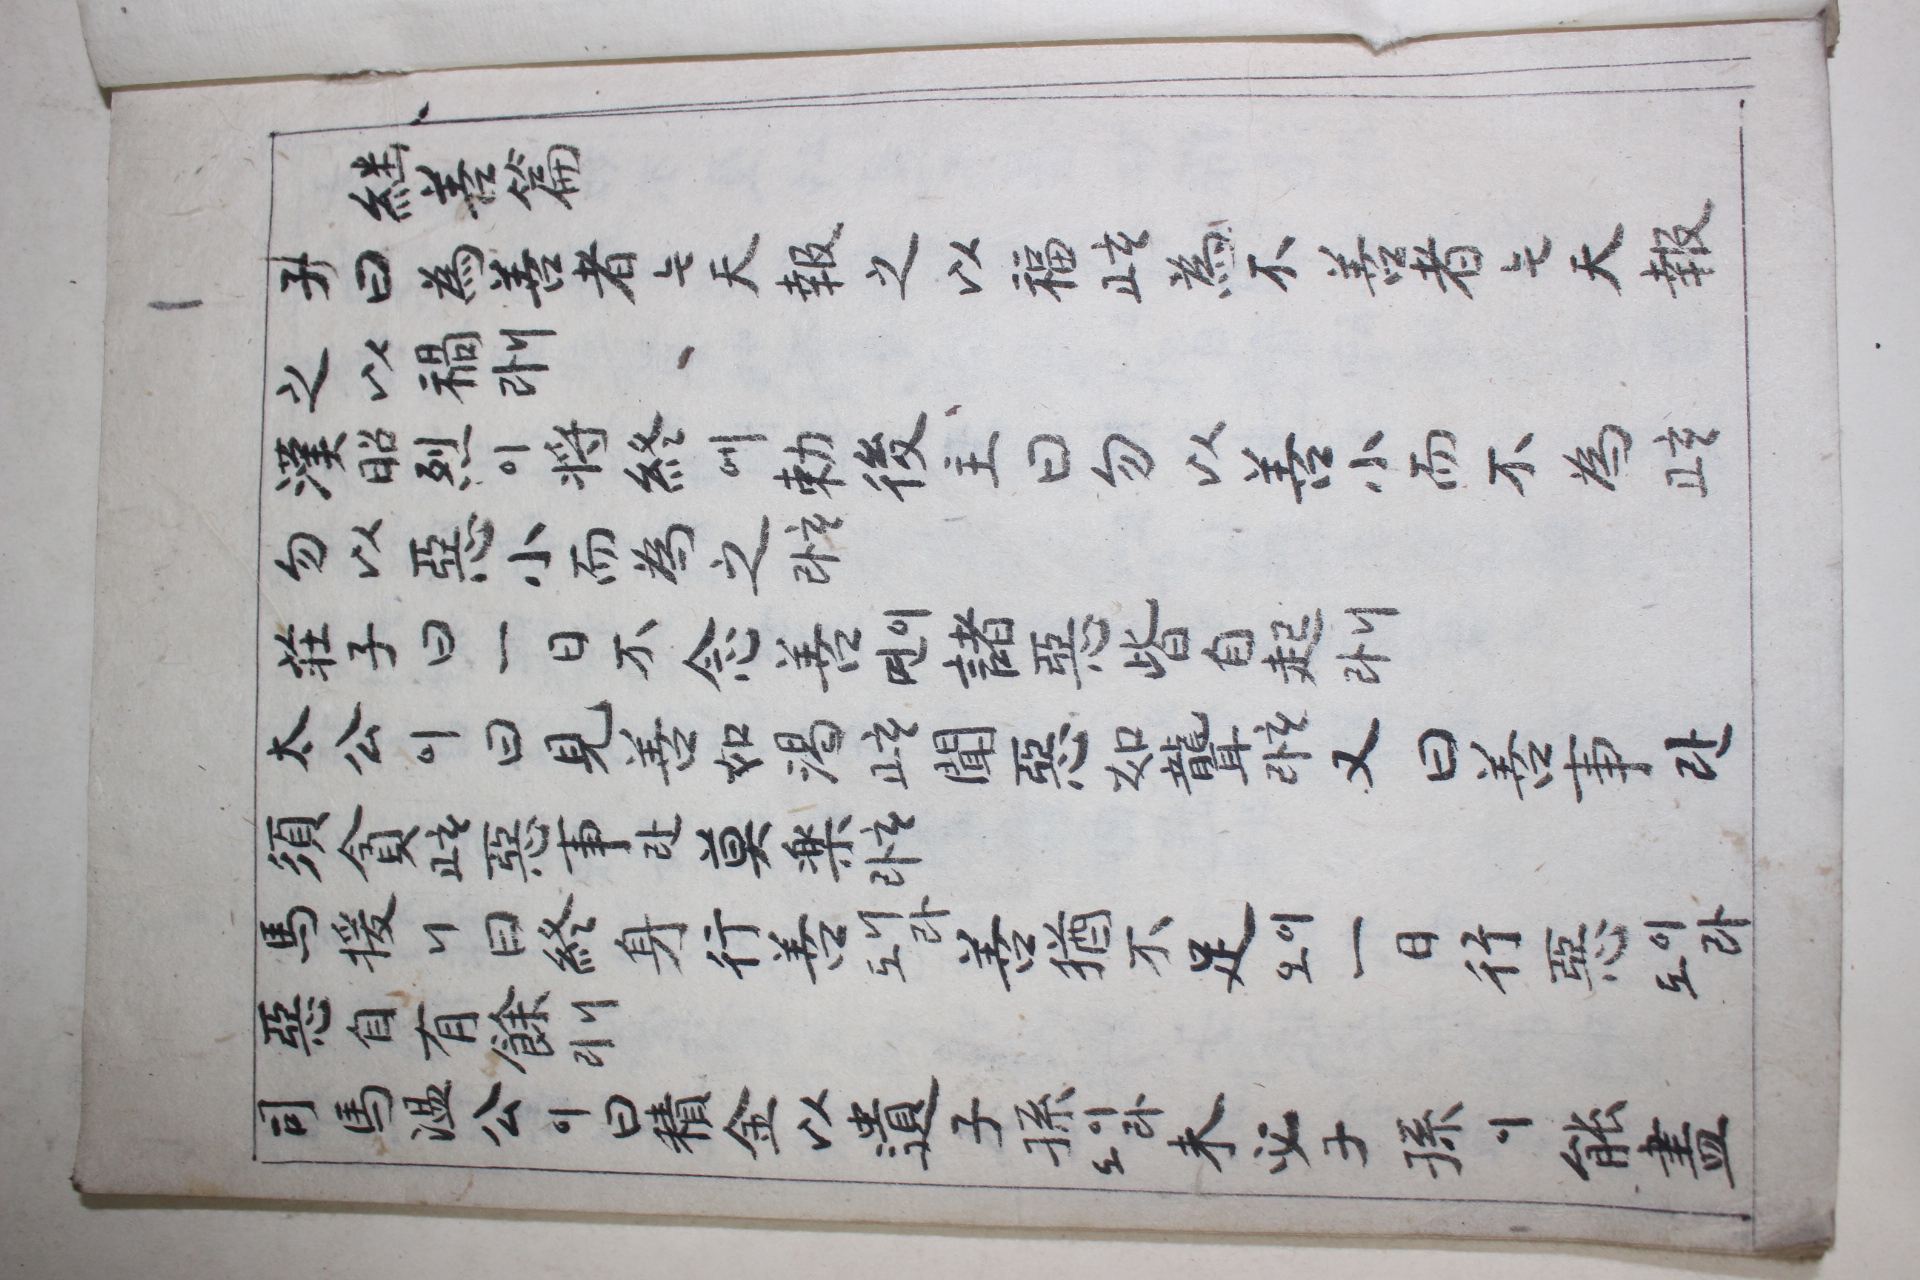 継善篇
子曰為善者는天報之以福하고為不善者는天報
之以禍라니
漢昭烈이将終에勅後主曰勿以善小而不為하고
勿以惡小而為之하라
莊子曰一日不念善이면諸惡皆自起라니
太公이曰見善如渴하고聞惡如聾하라又曰善事란
須貪하고惡事란莫楽하라
馬援니曰終身行善이라도善猶不足이오一日行惡이라도
惡自有餘리니
司馬溫公이曰積金以遺子孫이라도未必子孫이能盡